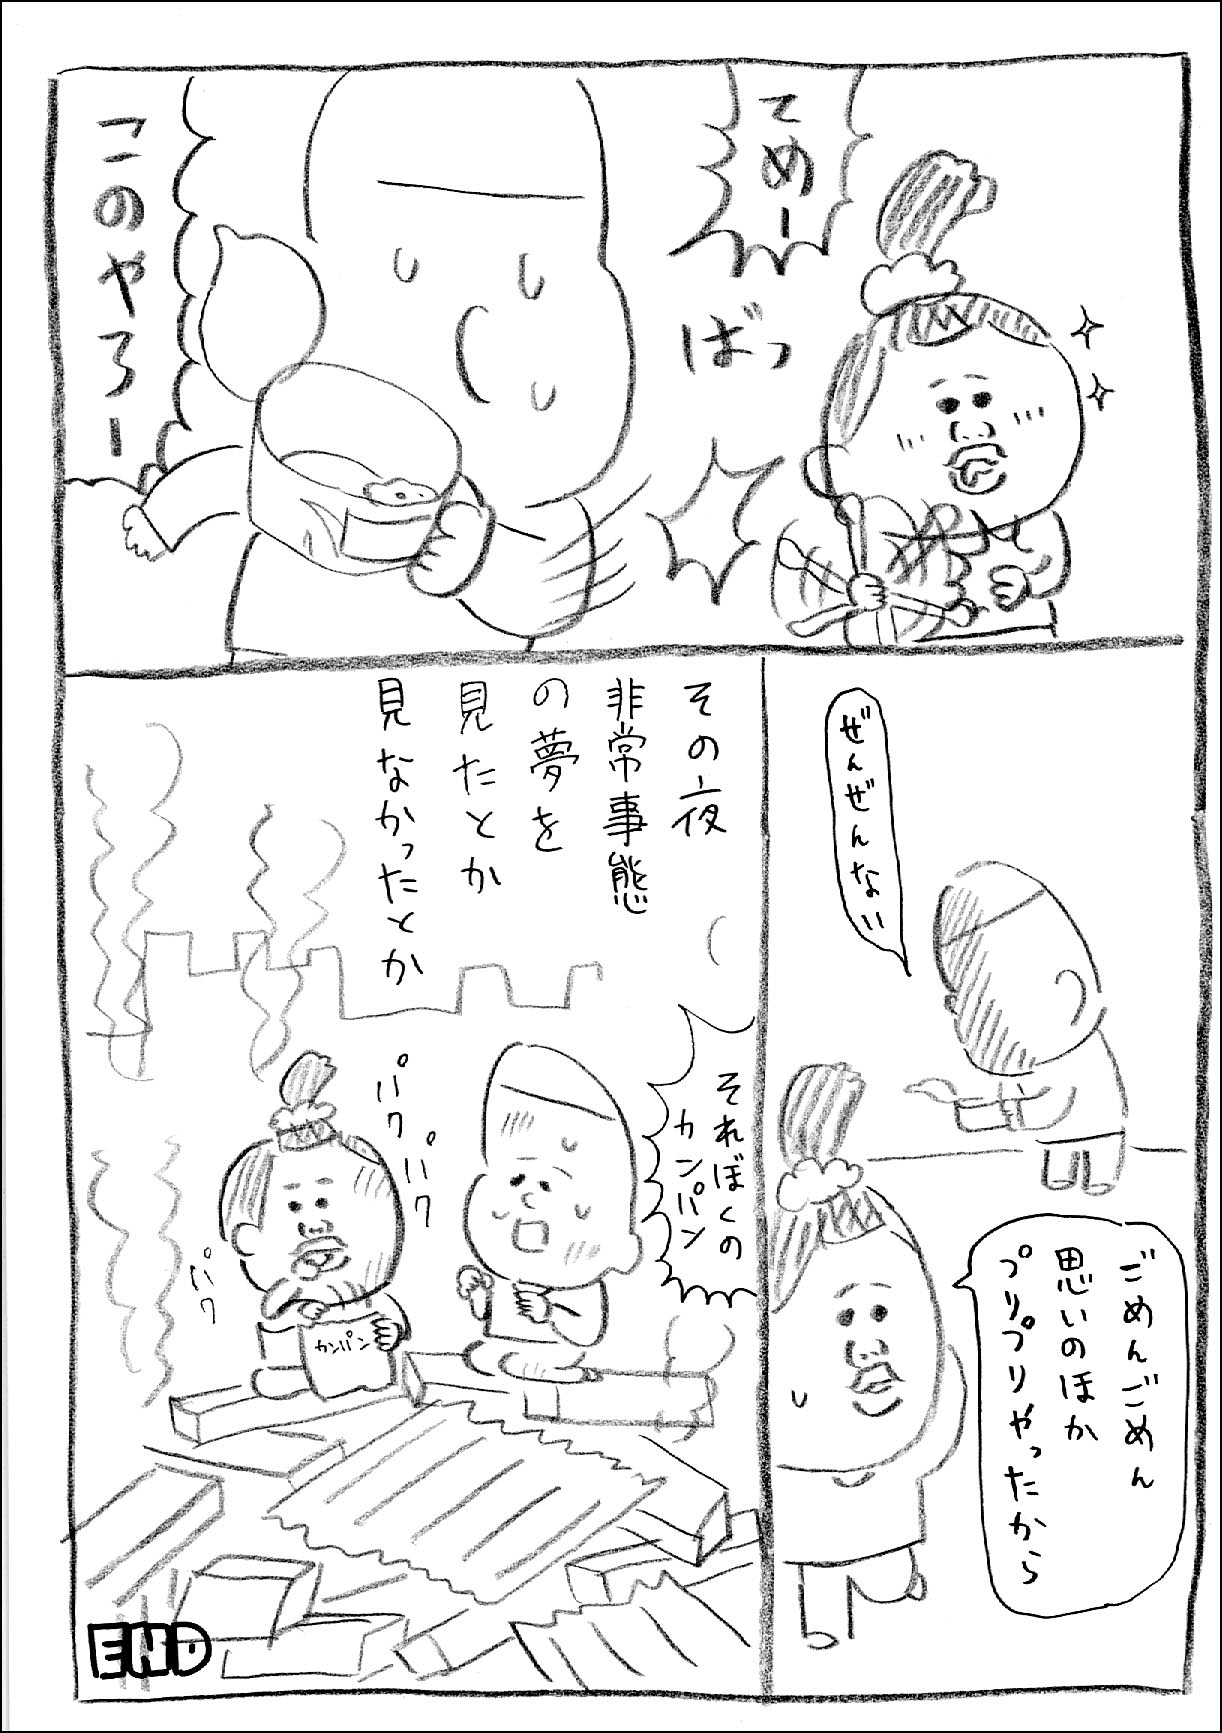 てめー
ばっ
このやろー
ぜんぜんない
ごめんごめん
思いのほか
プリプリやったから
その夜
非常事態
の夢を
見たとか
見なかったとか
それぼくの
カンパン
パク
パク
パク
カンパン
END